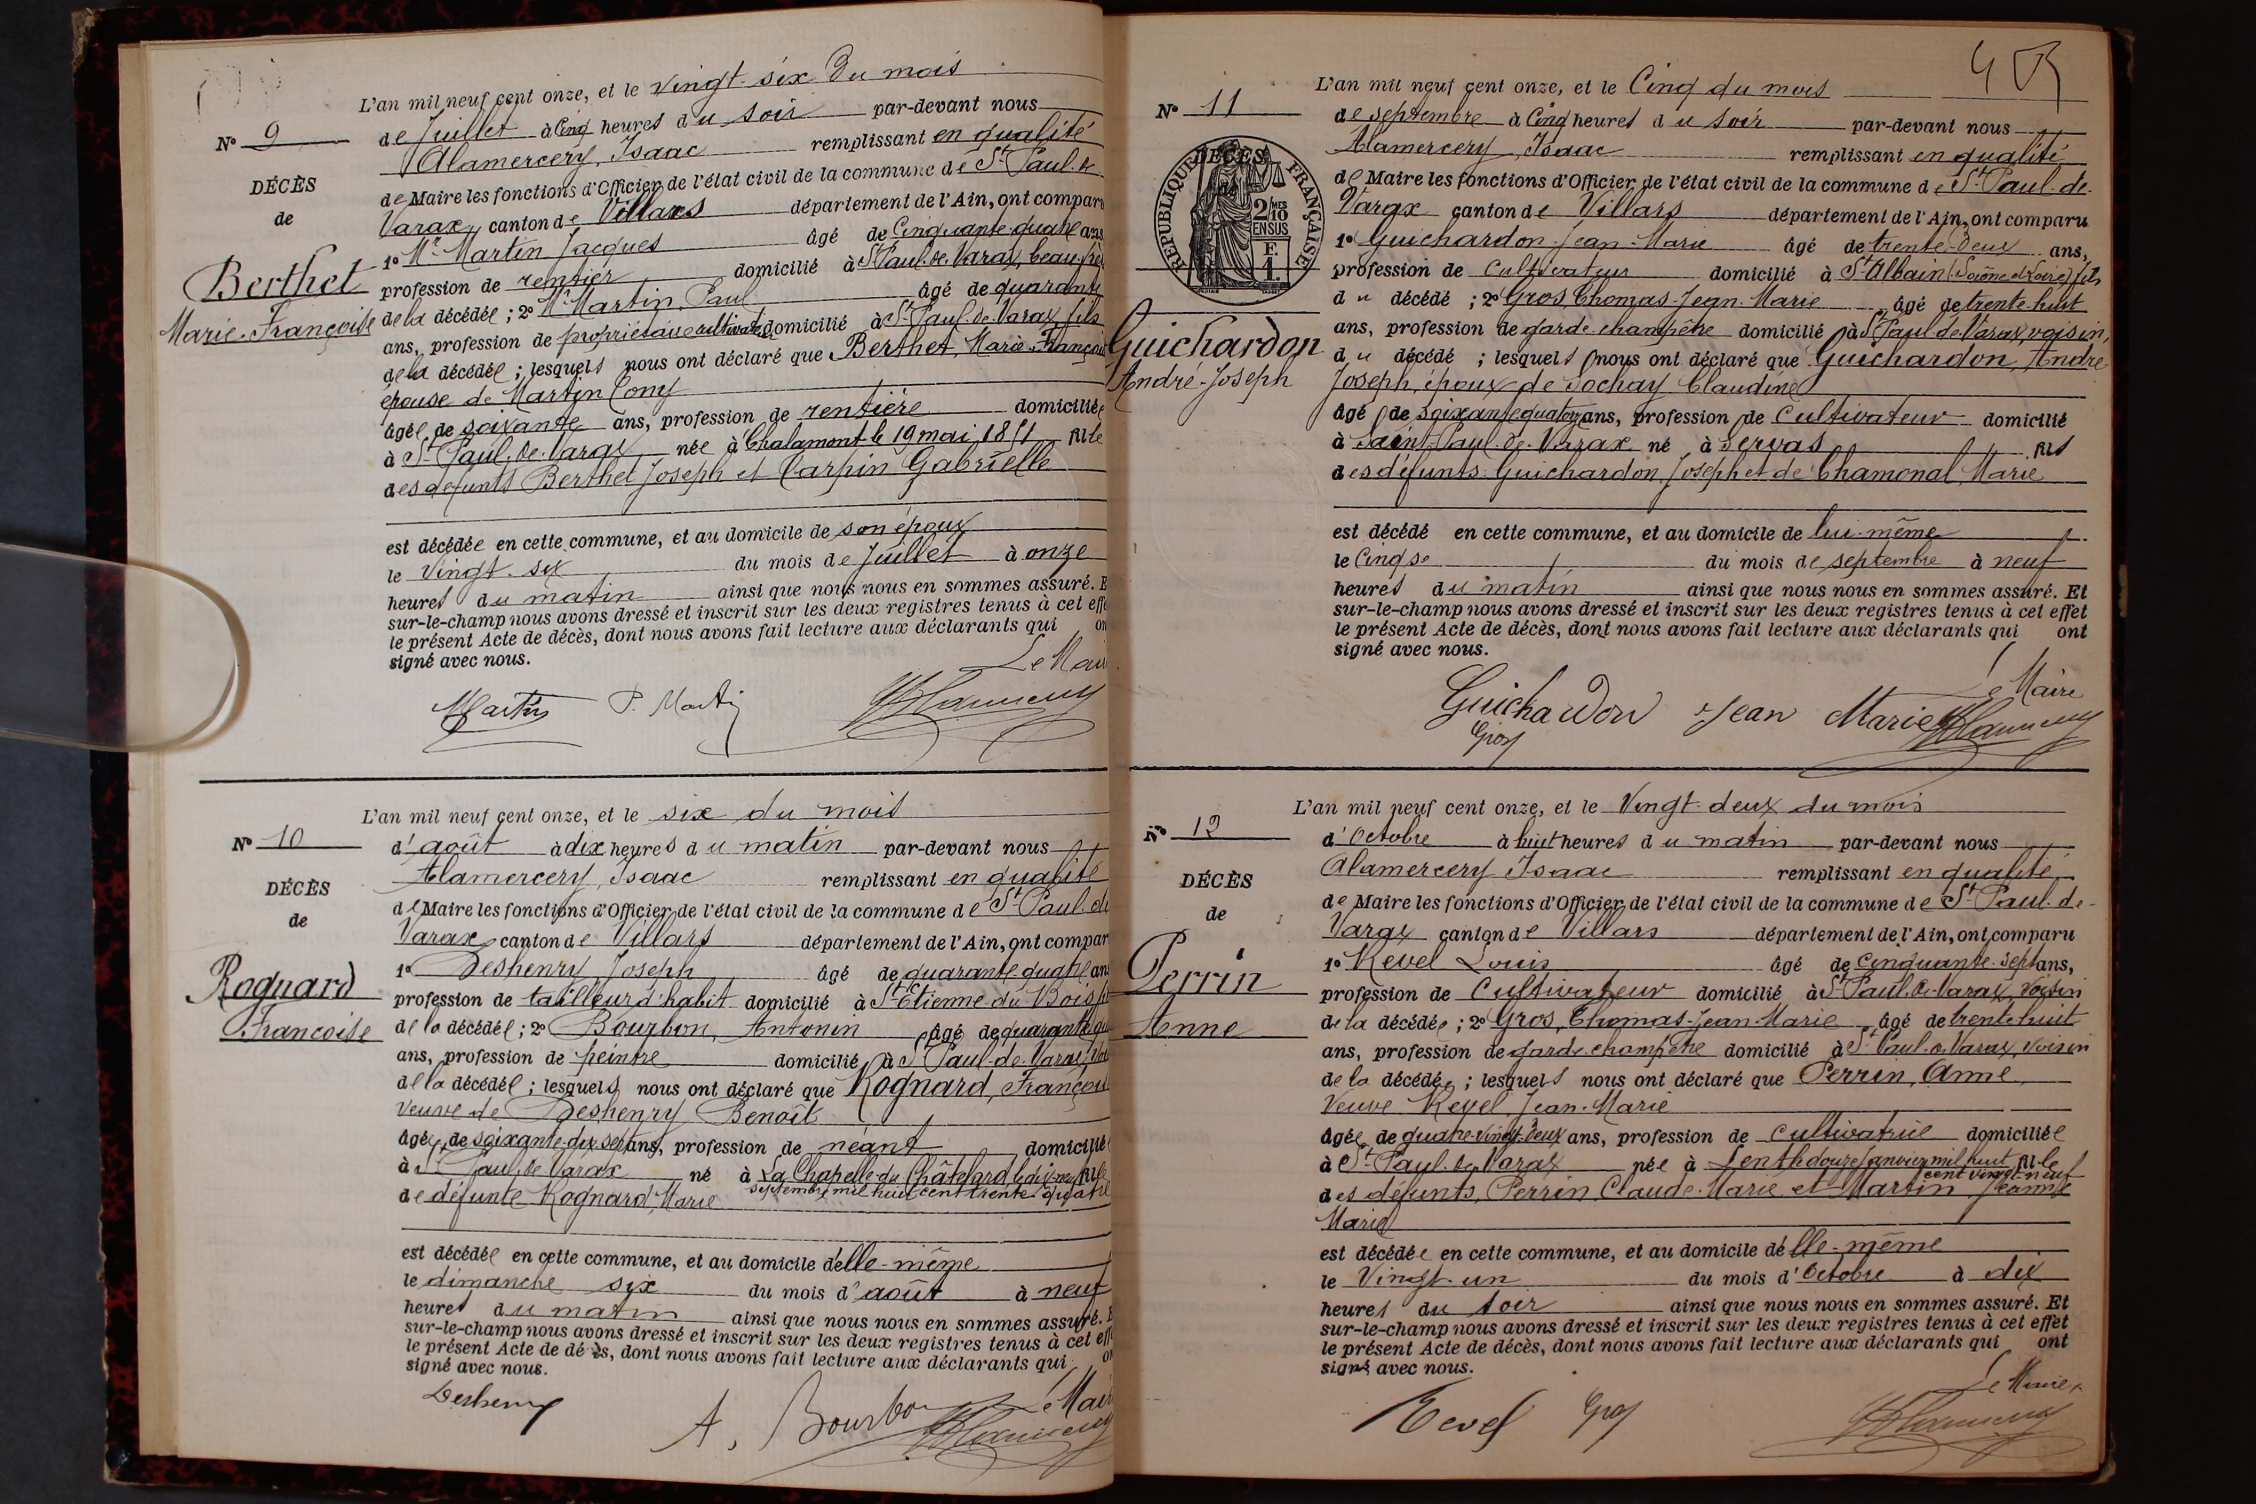 L'an mil neuf cent onze, et le vingt-six du mois
N° 9
de Juillet à Cinq heures du soir par-devant nous
Alamercery, Isaac remplissant en qualité
DÉCÈS
de Maire les fonctions d'Officier de l'état civil de la commune de St Paul-de
de
Varax canton de Villars département de l'Ain, ont comparu
1° Mr Martin Jacques âgé de Cinquante-quatre ans
Berthet
profession de rentier domicilié à St Paul-de-Varax, beau-frè
Marie-Françoise
de la décédée ; 2° Mr Martin, Paul âgé de quarante
ans, profession de propriétaire cultivateur domicilié à St Paul-de-Varax, fils
de la décédée ; lesquels nous ont déclaré que Berthet, Marie-Françoise
épouse de Martin Cony
âgée de soixante ans, profession de rentière domiciliée
à St Paul-de-Varax née à Chalamont le 19 mai 1851 fille
des défunts Berthet Joseph et Carpin Gabrielle
est décédée en cette commune, et au domicile de son époux
le vingt-six du mois de Juillet à onze
heures du matin ainsi que nous nous en sommes assuré. E
sur-le-champ nous avons dressé et inscrit sur les deux registres tenus à cet effe
le présent Acte de décès, dont nous avons fait lecture aux déclarants qui on
signé avec nous.
Le Mai
Martin P. Martin
L'an mil neuf cent onze, et le six du mois
N° 10
d'août à dix heures du matin par-devant nous
Alamercery, Isaac remplissant en qualité
DÉCÈS
de Maire les fonctions d'Officier de l'état civil de la commune de St Paul-de
de
Varax canton de Villars département de l'Ain, ont compar
1° Deshenry Joseph âgé de quarante-quatre ans
Rognard
profession de tailleur d'habit domicilié à St Etienne-du-Bois, fils
Françoise
de la décédée ; 2° Bourbon, Antonin âgé de quarante
ans, profession de peintre domicilié à St Paul-de-Varax, voi
de la décédée ; lesquels nous ont déclaré que Rognard, Françoise
veuve de Deshenry Benoît
âgée de soixante-dix-sept ans, profession de néant domicilié
à St Paul-de-Varax né à La Chapelle-du-Châtelard le fille
septembre mil huit cent trente-quatre
de défunte Rognard, Marie
est décédée en cette commune, et au domicile d'elle-même
le dimanche six du mois d'août à neuf
heures du matin ainsi que nous nous en sommes assuré. E
sur-le-champ nous avons dressé et inscrit sur les deux registres tenus à cet eff
le présent Acte de décès, dont nous avons fait lecture aux déclarants qui o
signé avec nous.
Le Mair
Deshenry A. Bourbon
L'an mil neuf cent onze, et le Cinq du mois
N° 11
de septembre à Cinq heures du soir par-devant nous
Alamercery, Isaac remplissant en qualité
RÉPUBLIQUE FRANÇAISE
DÉCÈS
de
2/10 MES
EN SUS
F.
1.
de Maire les fonctions d'Officier de l'état civil de la commune de St Paul-de-
Varax canton de Villars département de l'Ain, ont comparu
1° Guichardon Jean-Marie âgé de trente-deux ans,
profession de Cultivateur domicilié à St Albain (Saône et Loire) fils
Guichardon
André-Joseph
du décédé ; 2° Gros, Thomas-Jean-Marie âgé de trente-huit
ans, profession de garde champêtre domicilié à St Paul-de-Varax, voisin,
du décédé ; lesquels nous ont déclaré que Guichardon, André
Joseph, époux de Sochay Claudine
âgé de soixante quatorze ans, profession de Cultivateur domicilié
à Saint-Paul-de-Varax né à Servas fils
des défunts Guichardon, Joseph et de Chamonal Marie
est décédé en cette commune, et au domicile de lui-même
le Cinq se du mois de septembre à neuf
heures du matin ainsi que nous nous en sommes assuré. Et
sur-le-champ nous avons dressé et inscrit sur les deux registres tenus à cet effet
le présent Acte de décès, dont nous avons fait lecture aux déclarants qui ont
signé avec nous.
Le Maire
Guichardon Jean Marie
Gros
L'an mil neuf cent onze, et le Vingt-deux du mois
N° 12
d'Octobre à huit heures du matin par-devant nous
Alamercery Isaac remplissant en qualité
DÉCÈS
de Maire les fonctions d'Officier de l'état civil de la commune de St Paul-de-
de
Varax canton de Villars département de l'Ain, ont comparu
1° Revel Louis âgé de Cinquante-sept ans,
Perrin
profession de Cultivateur domicilié à St Paul-de-Varax, voisin
Anne
de la décédée ; 2° Gros, Thomas-Jean-Marie âgé de trente-huit
ans, profession de garde champêtre domicilié à St Paul-de-Varax, voisin
de la décédée ; lesquels nous ont déclaré que Perrin, Anne
Veuve Revel Jean-Marie
âgée de quatre-vingt-deux ans, profession de Cultivatrice domiciliée
à St Paul-de-Varax née à Lent le douze Janvier mil huit fille
cent vingt-neuf
des défunts, Perrin Claude-Marie et Martin Jeanne
Marie
est décédée en cette commune, et au domicile d'elle-même
le Vingt-un du mois d'Octobre à dix
heures du soir ainsi que nous nous en sommes assuré. Et
sur-le-champ nous avons dressé et inscrit sur les deux registres tenus à cet effet
le présent Acte de décès, dont nous avons fait lecture aux déclarants qui ont
signé avec nous.
Le Maire
Revel Gros